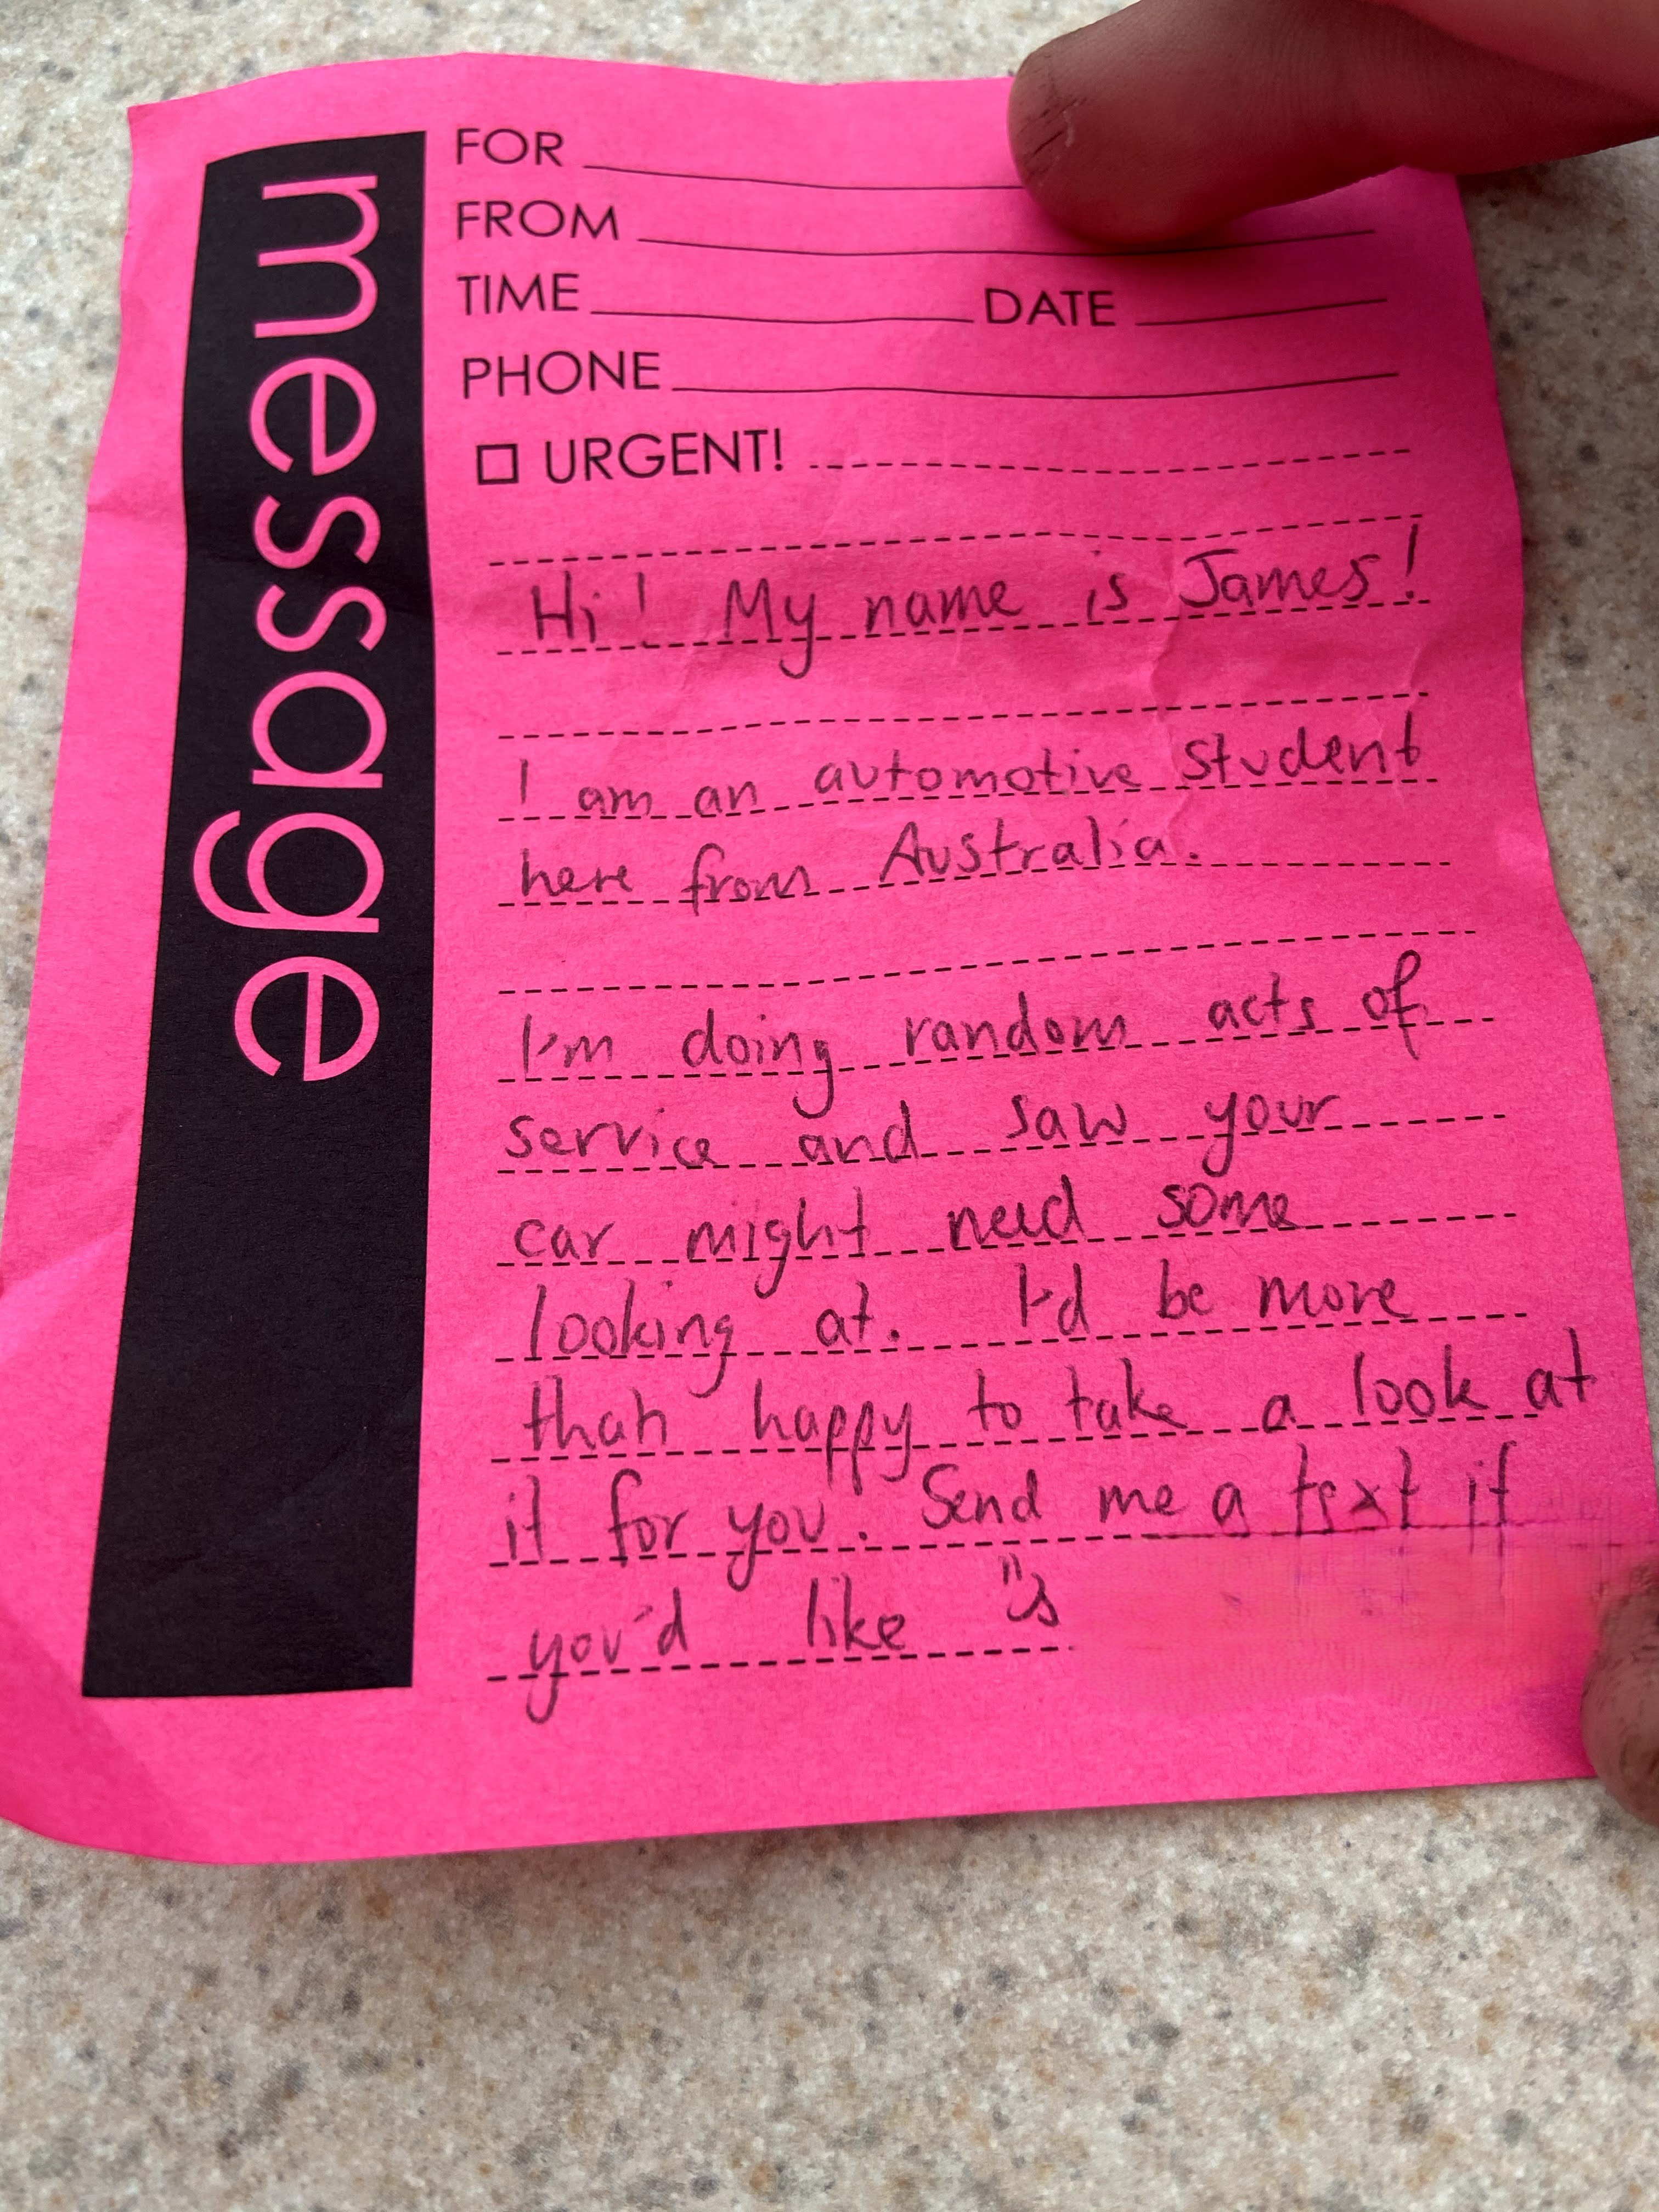 message
FOR
FROM
TIME DATE
PHONE
URGENT!
Hi! My name is James!
I am an automotive student
here from Australia.
I'm doing random acts of
service and saw your
car might need some
looking at. I'd be more
than happy to take a look at
it for you. Send me a text if
you'd like